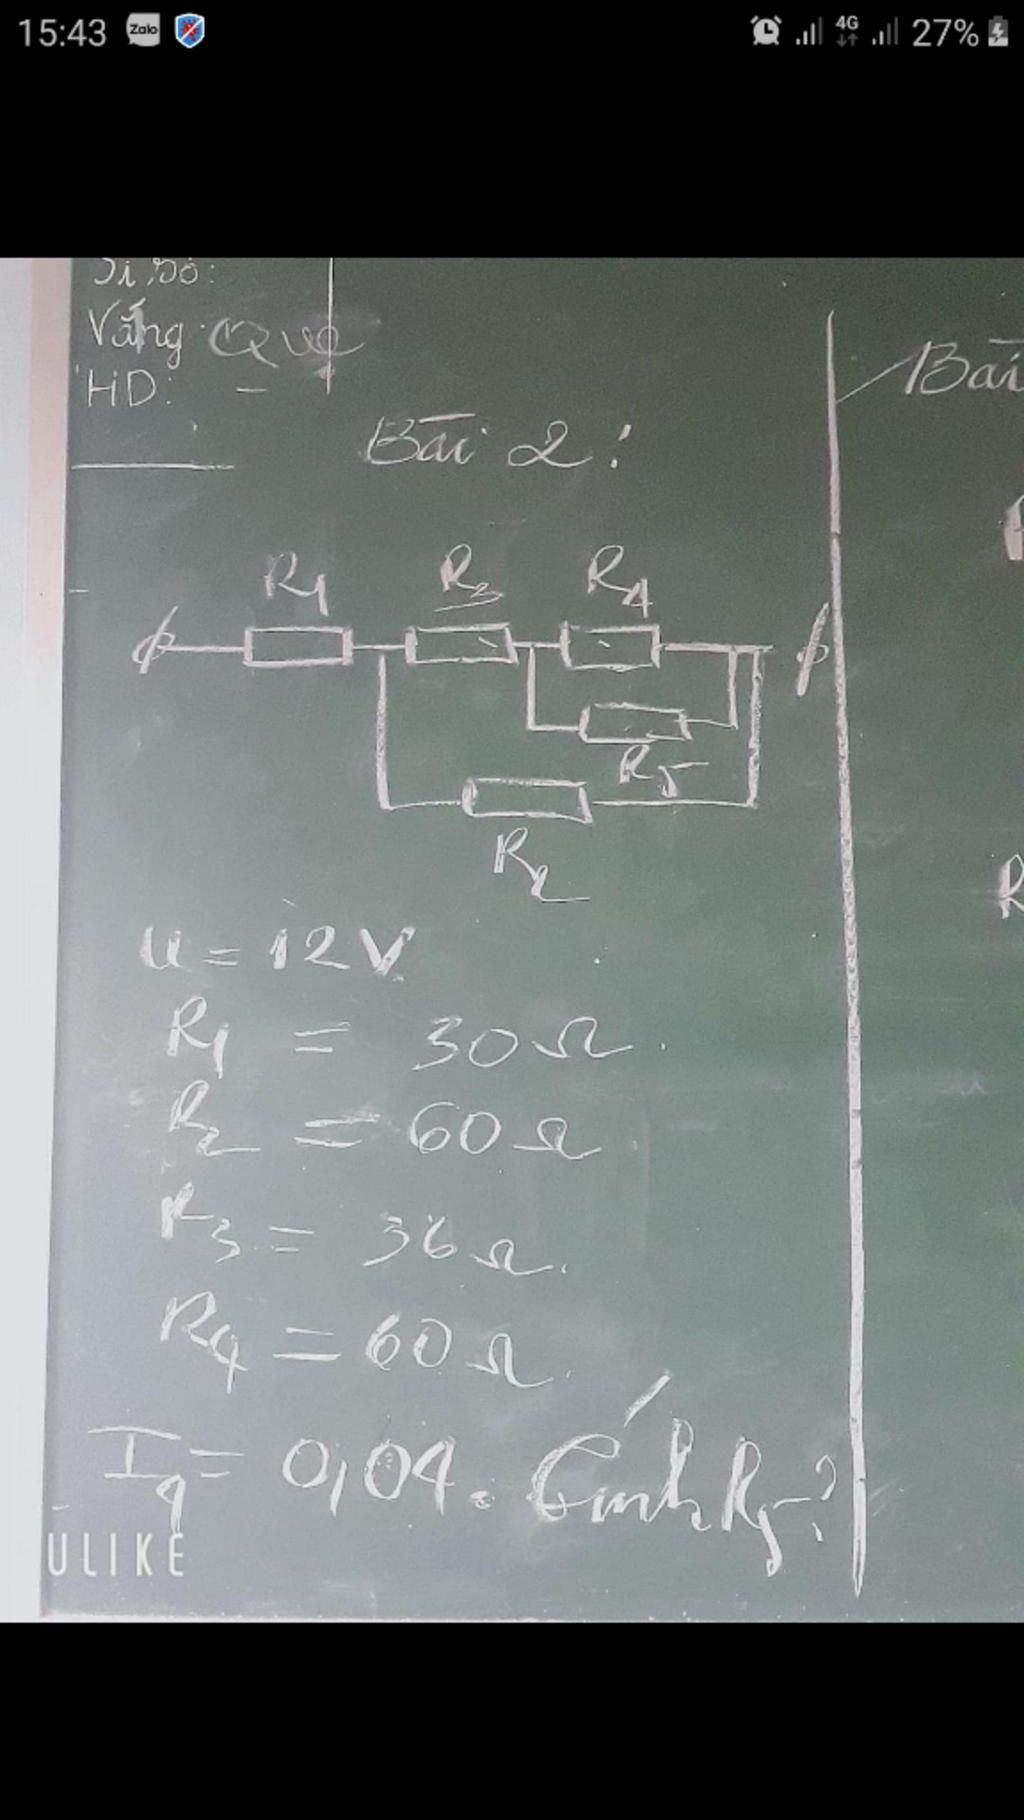 15:43 Zalo 4G 27%
Sĩ Số:
Vắng: Que
HD: -
Bài
Bài 2:
R1 R3 R4
R5
R2
U = 12V
R1 = 30Ω
R2 = 60Ω
R3 = 36Ω
R4 = 60Ω
I4 = 0,04. Tính R5?
ULIKE